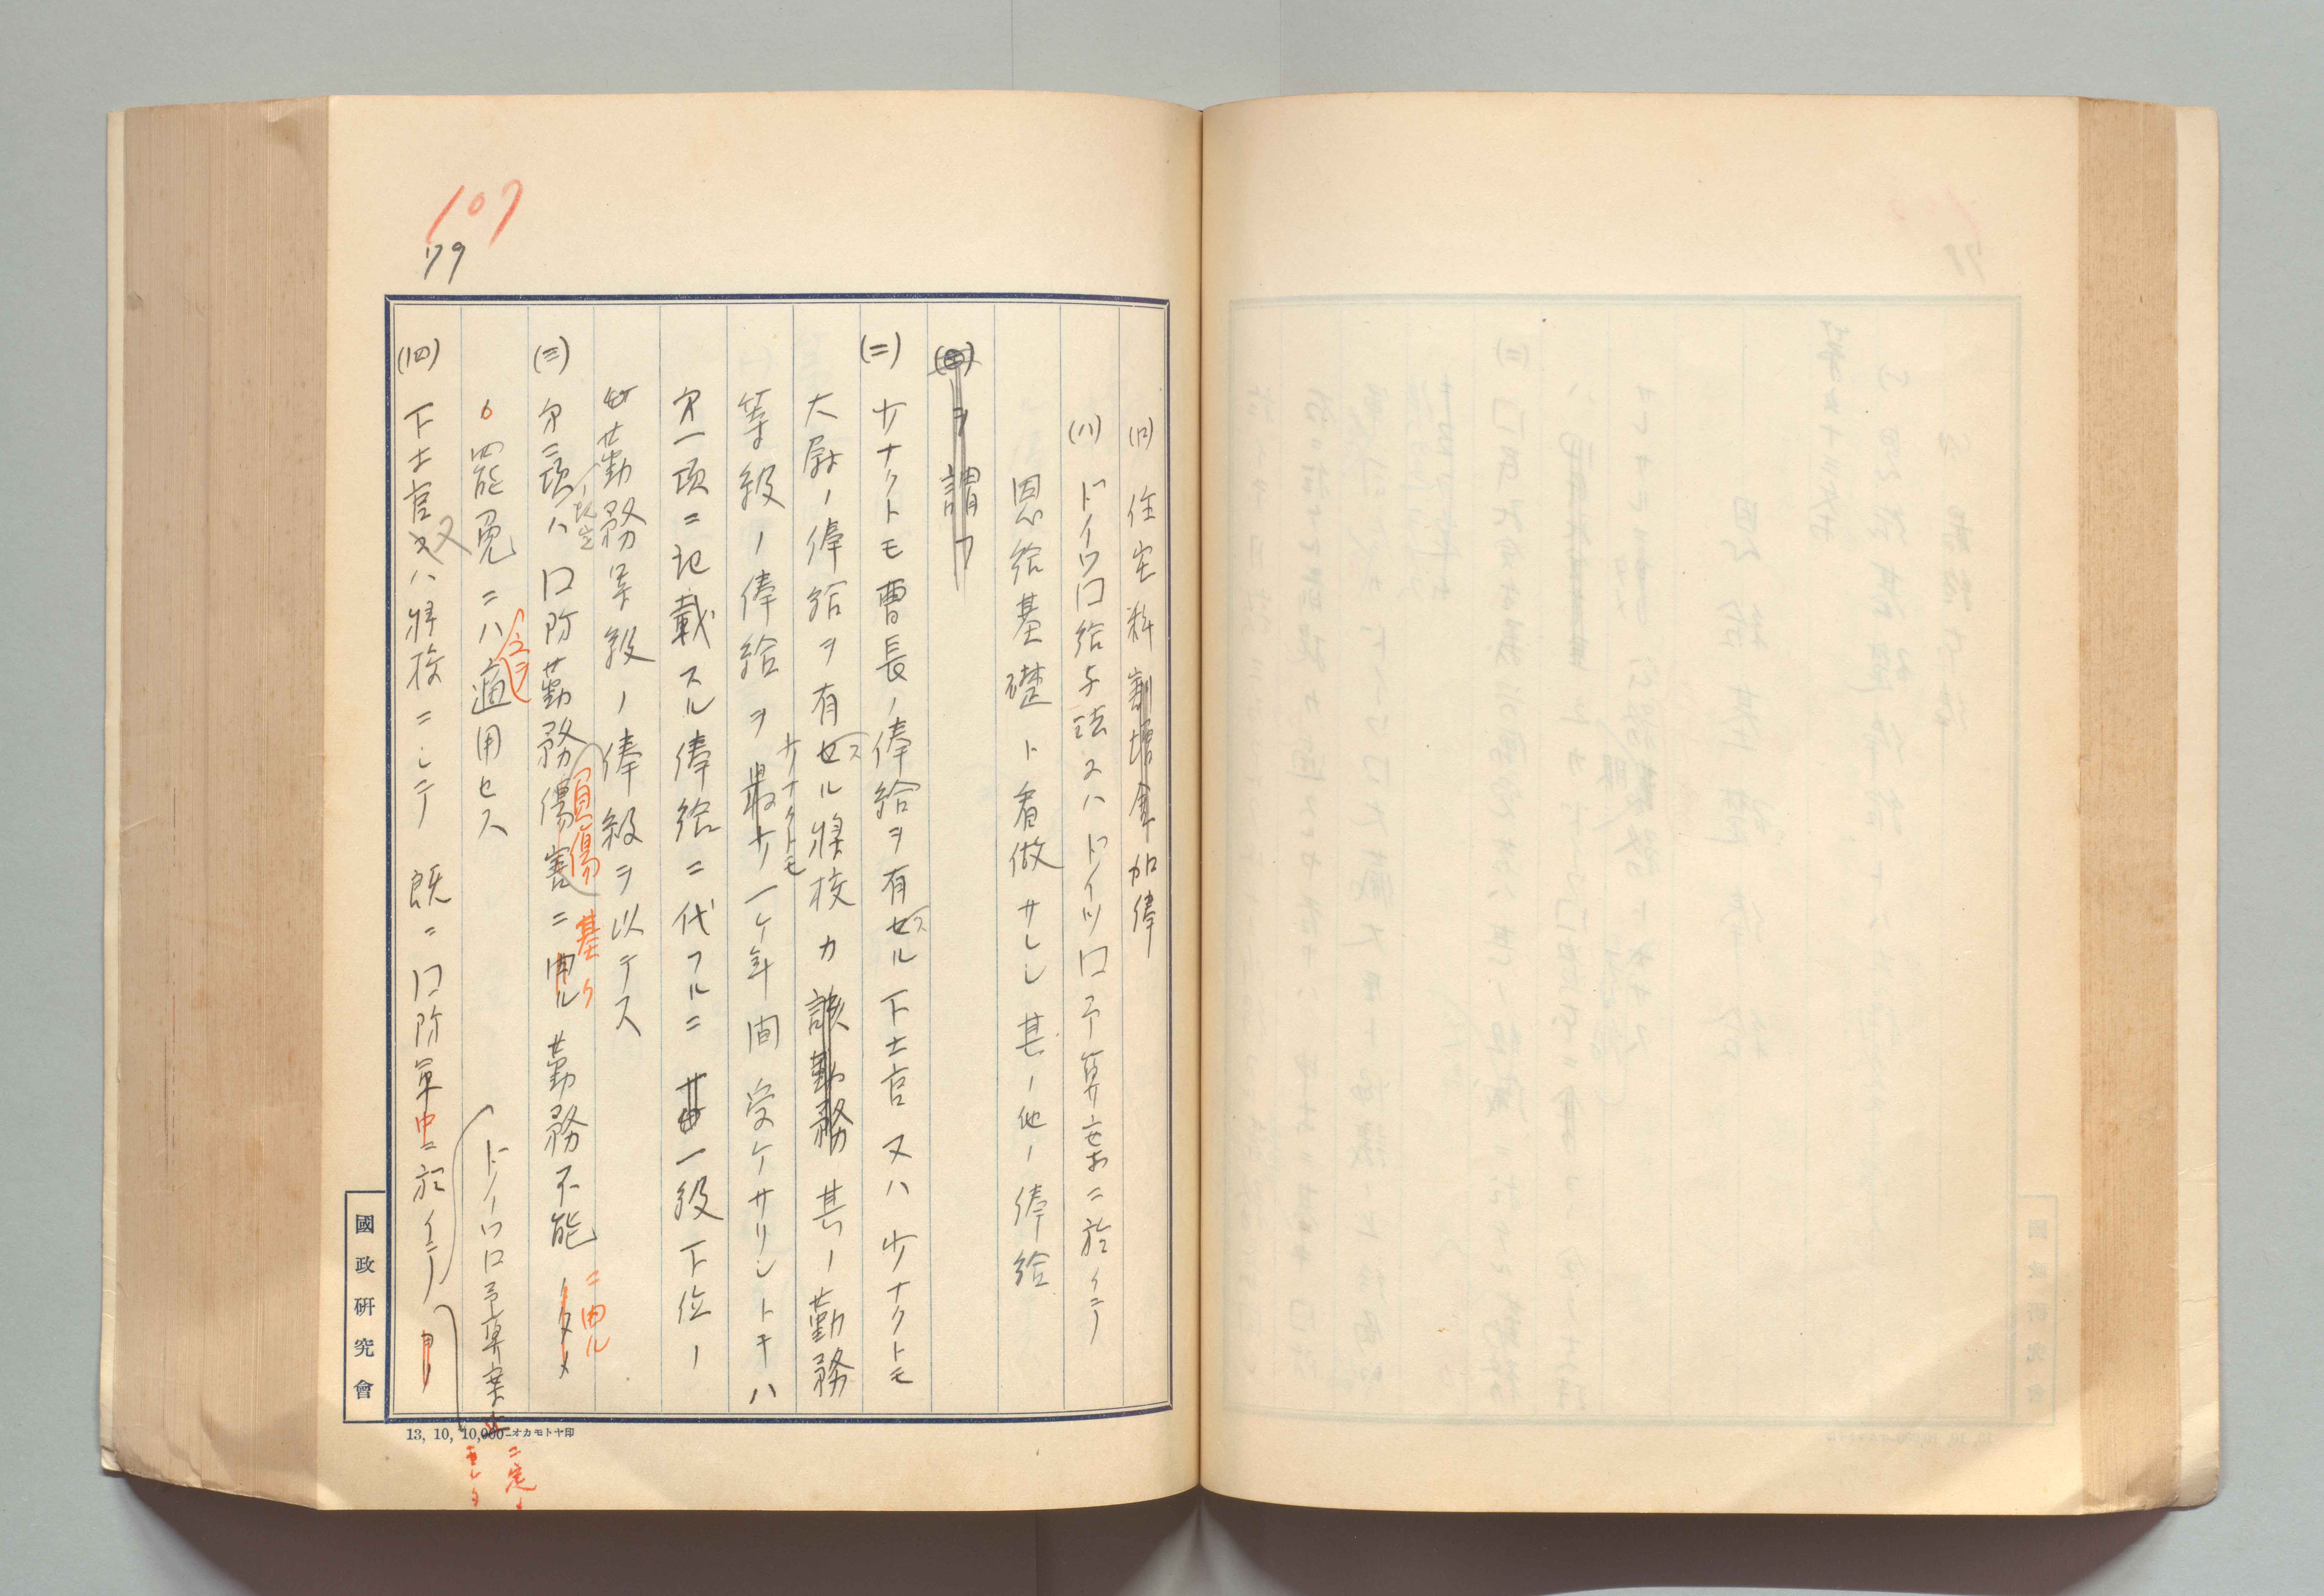 107
79
(ロ) 住宅料割増金加俸
(ハ) ドイツ囗給与法又ハドイツ囗予算案ニ於イテ
恩給基礎ト看做サレシ其ノ他ノ俸給
ヲ謂フ
(二) 少ナクトモ曹長ノ俸給ヲ有セスル下士官又ハ少ナクトモ
大尉ノ俸給ヲ有セスル将校カ該勤務其ノ勤務
等級ノ俸給ヲ最少少ナクトモ一ケ年間受ケサリシトキハ
第一項ニ記載スル俸給ニ代フルニ 一級下位ノ
勤務等級ノ俸級ヲ以テス
(三) 第二項ノ規定ハ囗防勤務傷害負傷ニ基ク因ル勤務不能ノタメニ因ル
ノ罷免ニハ之ヲ適用セス
ドイツ囗予算案ニ定メ
(四) 下士官又又ハ将校ニシテ既ニ囗防軍中ニ於イテ
國政研究會
13, 10, 10,000-オカモトヤ印